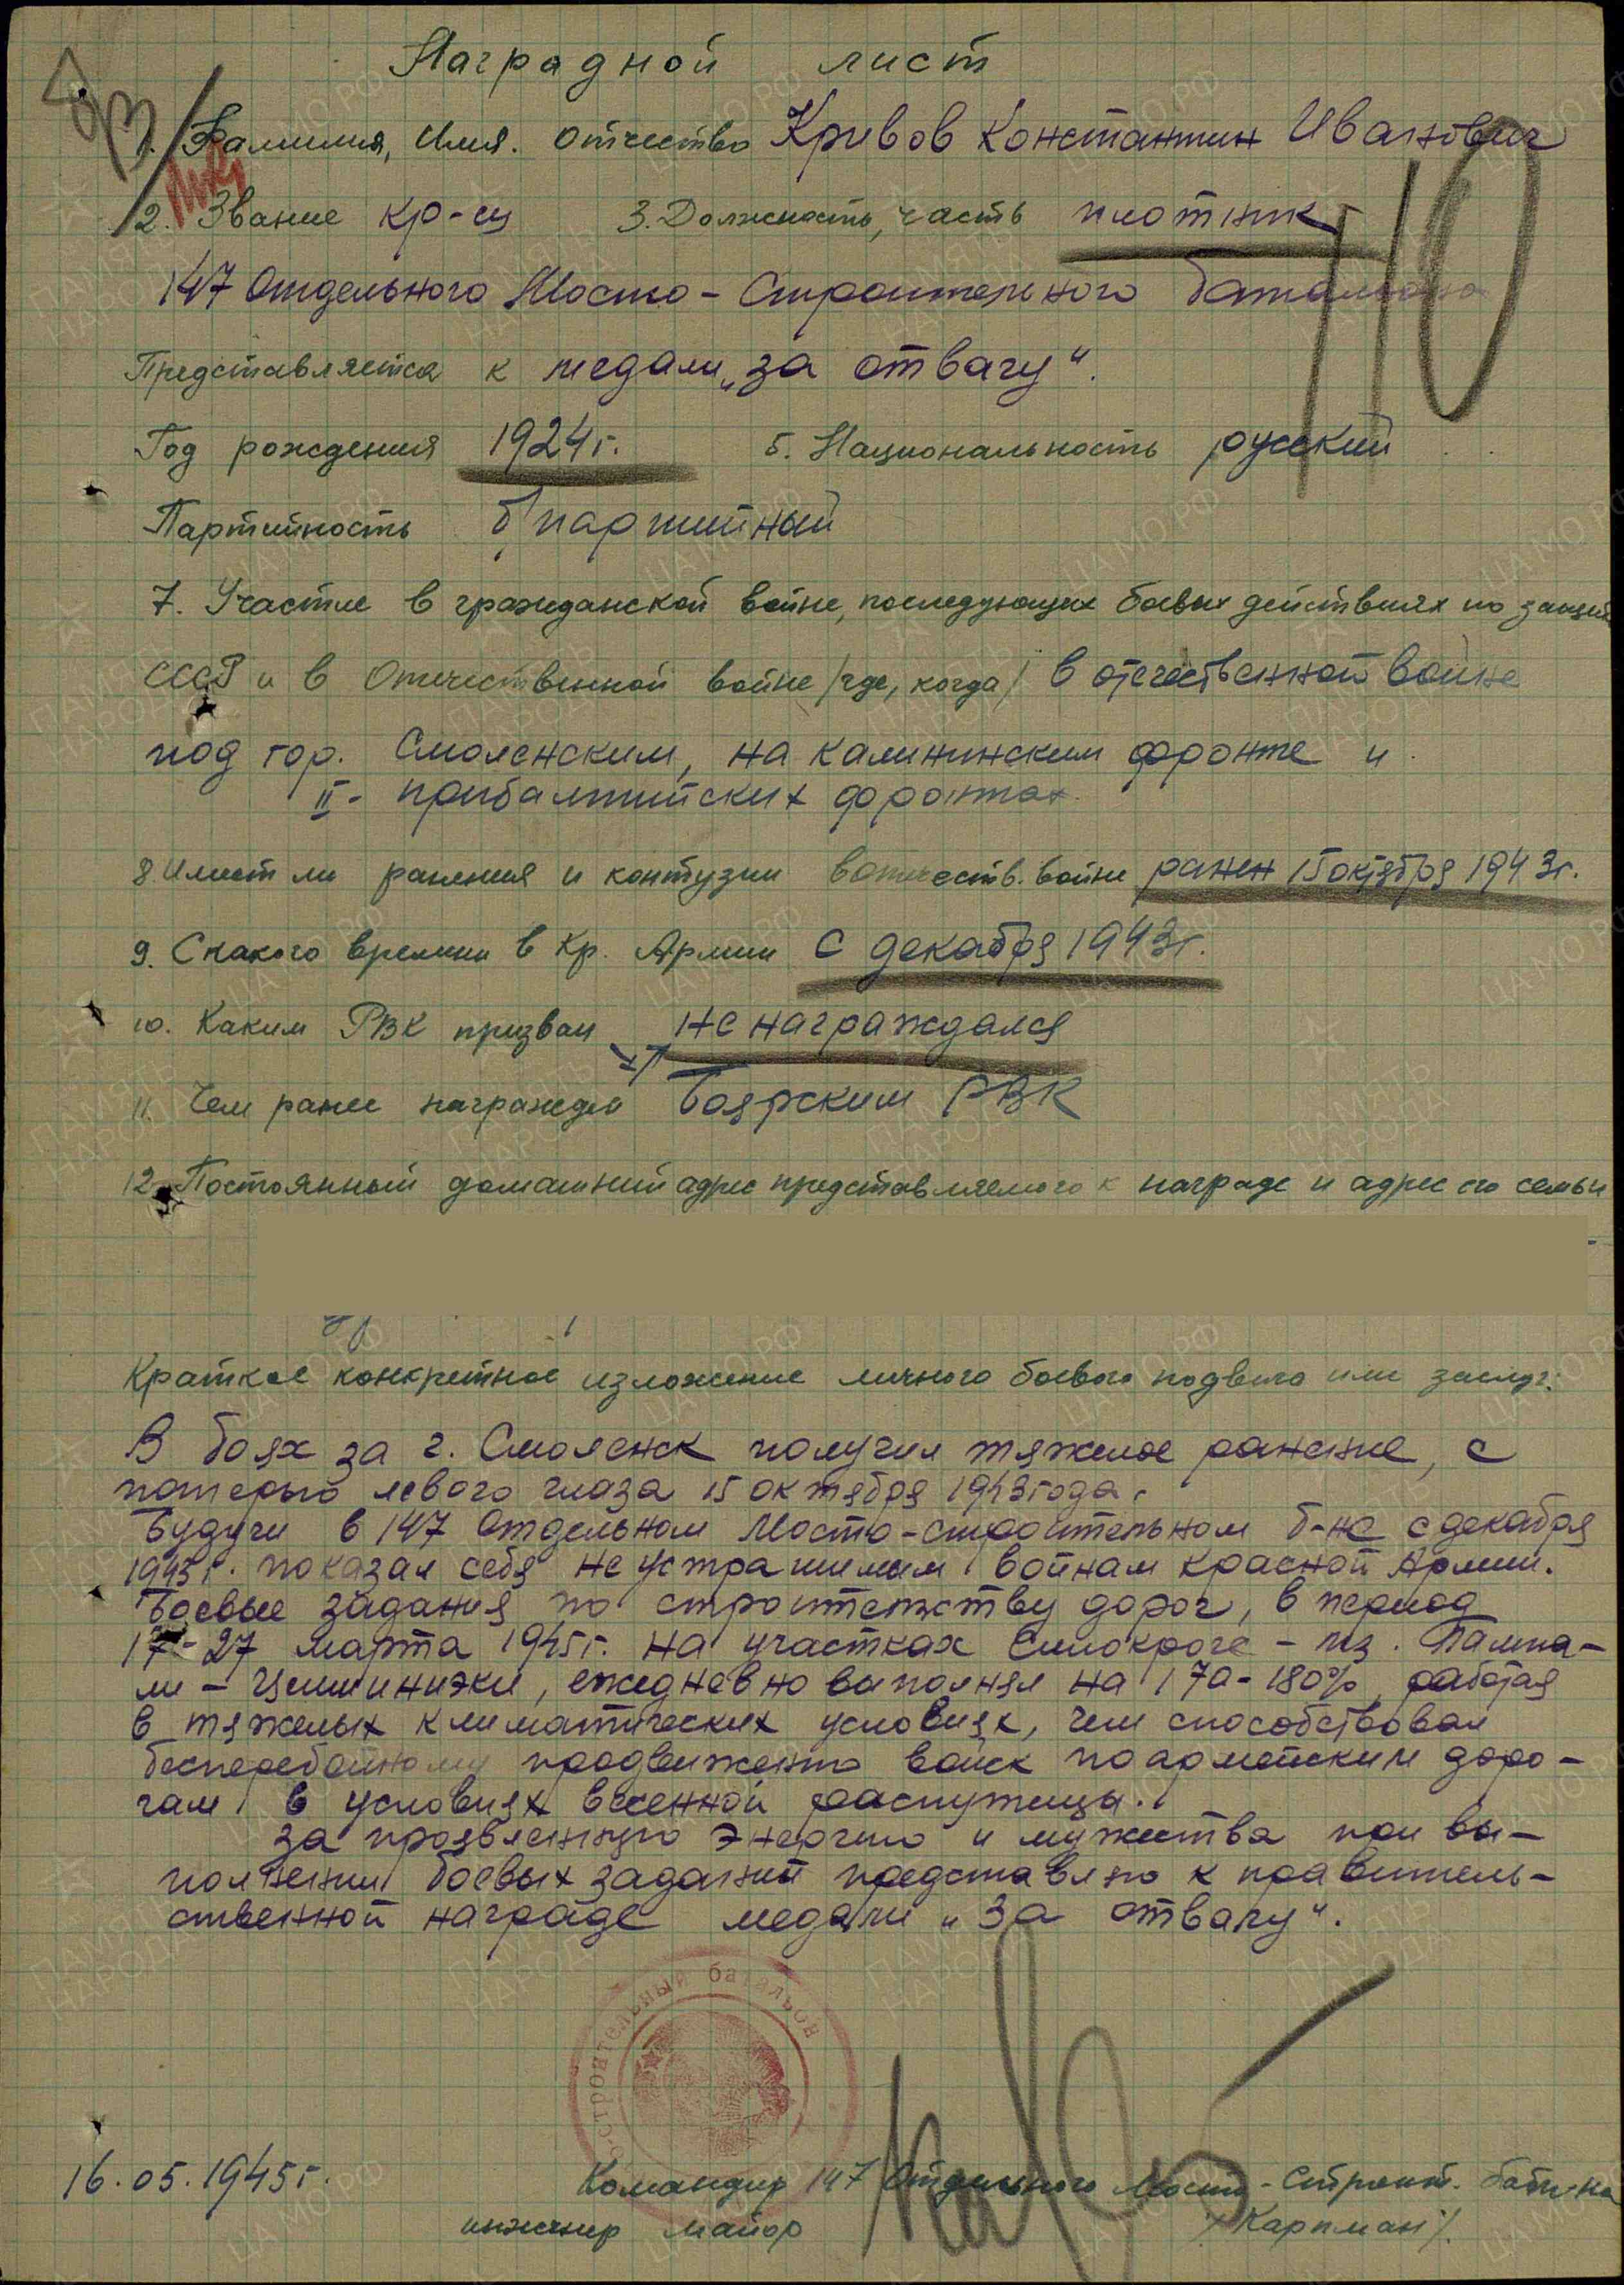 Наградной лист
1. Фамилия, Имя. Отчество Кривов Константин Иванович
2. Звание кр-ец 3. Должность, часть плотник
147 Отдельного Мосто-Строительного батальона
110
Представляется к медали „за отвагу".
Год рождения 1924г. 5. Национальность русский
Партийность б/партийный
7. Участие в гражданской войне, последующих боевых действиях по защите
СССР и в Отечественной войне /где, когда/ в отечественной войне
под гор. Смоленским, на калининским фронте и
II- прибалтийских фронтах.
8. Имеет ли ранения и контузии в отечеств. войне ранен 15 октября 1943г.
9. С какого времени в Кр. Армии С декабря 1943г.
10. Каким РВК призван не награждался
11. Чем ранее награжден Боярским РВК
12. Постоянный домашний адрес представляемого к награде и адрес его семьи
Краткое конкретное изложение личного боевого подвига или заслуг:
В боях за г. Смоленск получил тяжелое ранение, с
потерью левого глаза 15 октября 1943 года.
Будучи в 147 Отдельном Мосто-строительном б-не с декабря
1943г. показал себя не устрашимым войнам красной Армии.
Боевые задания по строительству дорог, в период
17-27 марта 1945г. на участках - мз. Пампа-
ли - , ежедневно выполнял на 170-180%, работая
в тяжелых климатических условиях, чем способствовал
бесперебойному продвижению войск по армейским доро-
гам в условиях весенной распутицы.
За проявленную энергию и мужества при вы-
полнении боевых заданий представляю к правитель-
ственной награде медали „За отвагу".
о-строительный батальон
16.05.1945г.
Командир 147 Отдельного Мосто-Строит. бат-на
инженер майор /Карпман/.
ПАМЯТЬ НАРОДА
ЦА МО РФ